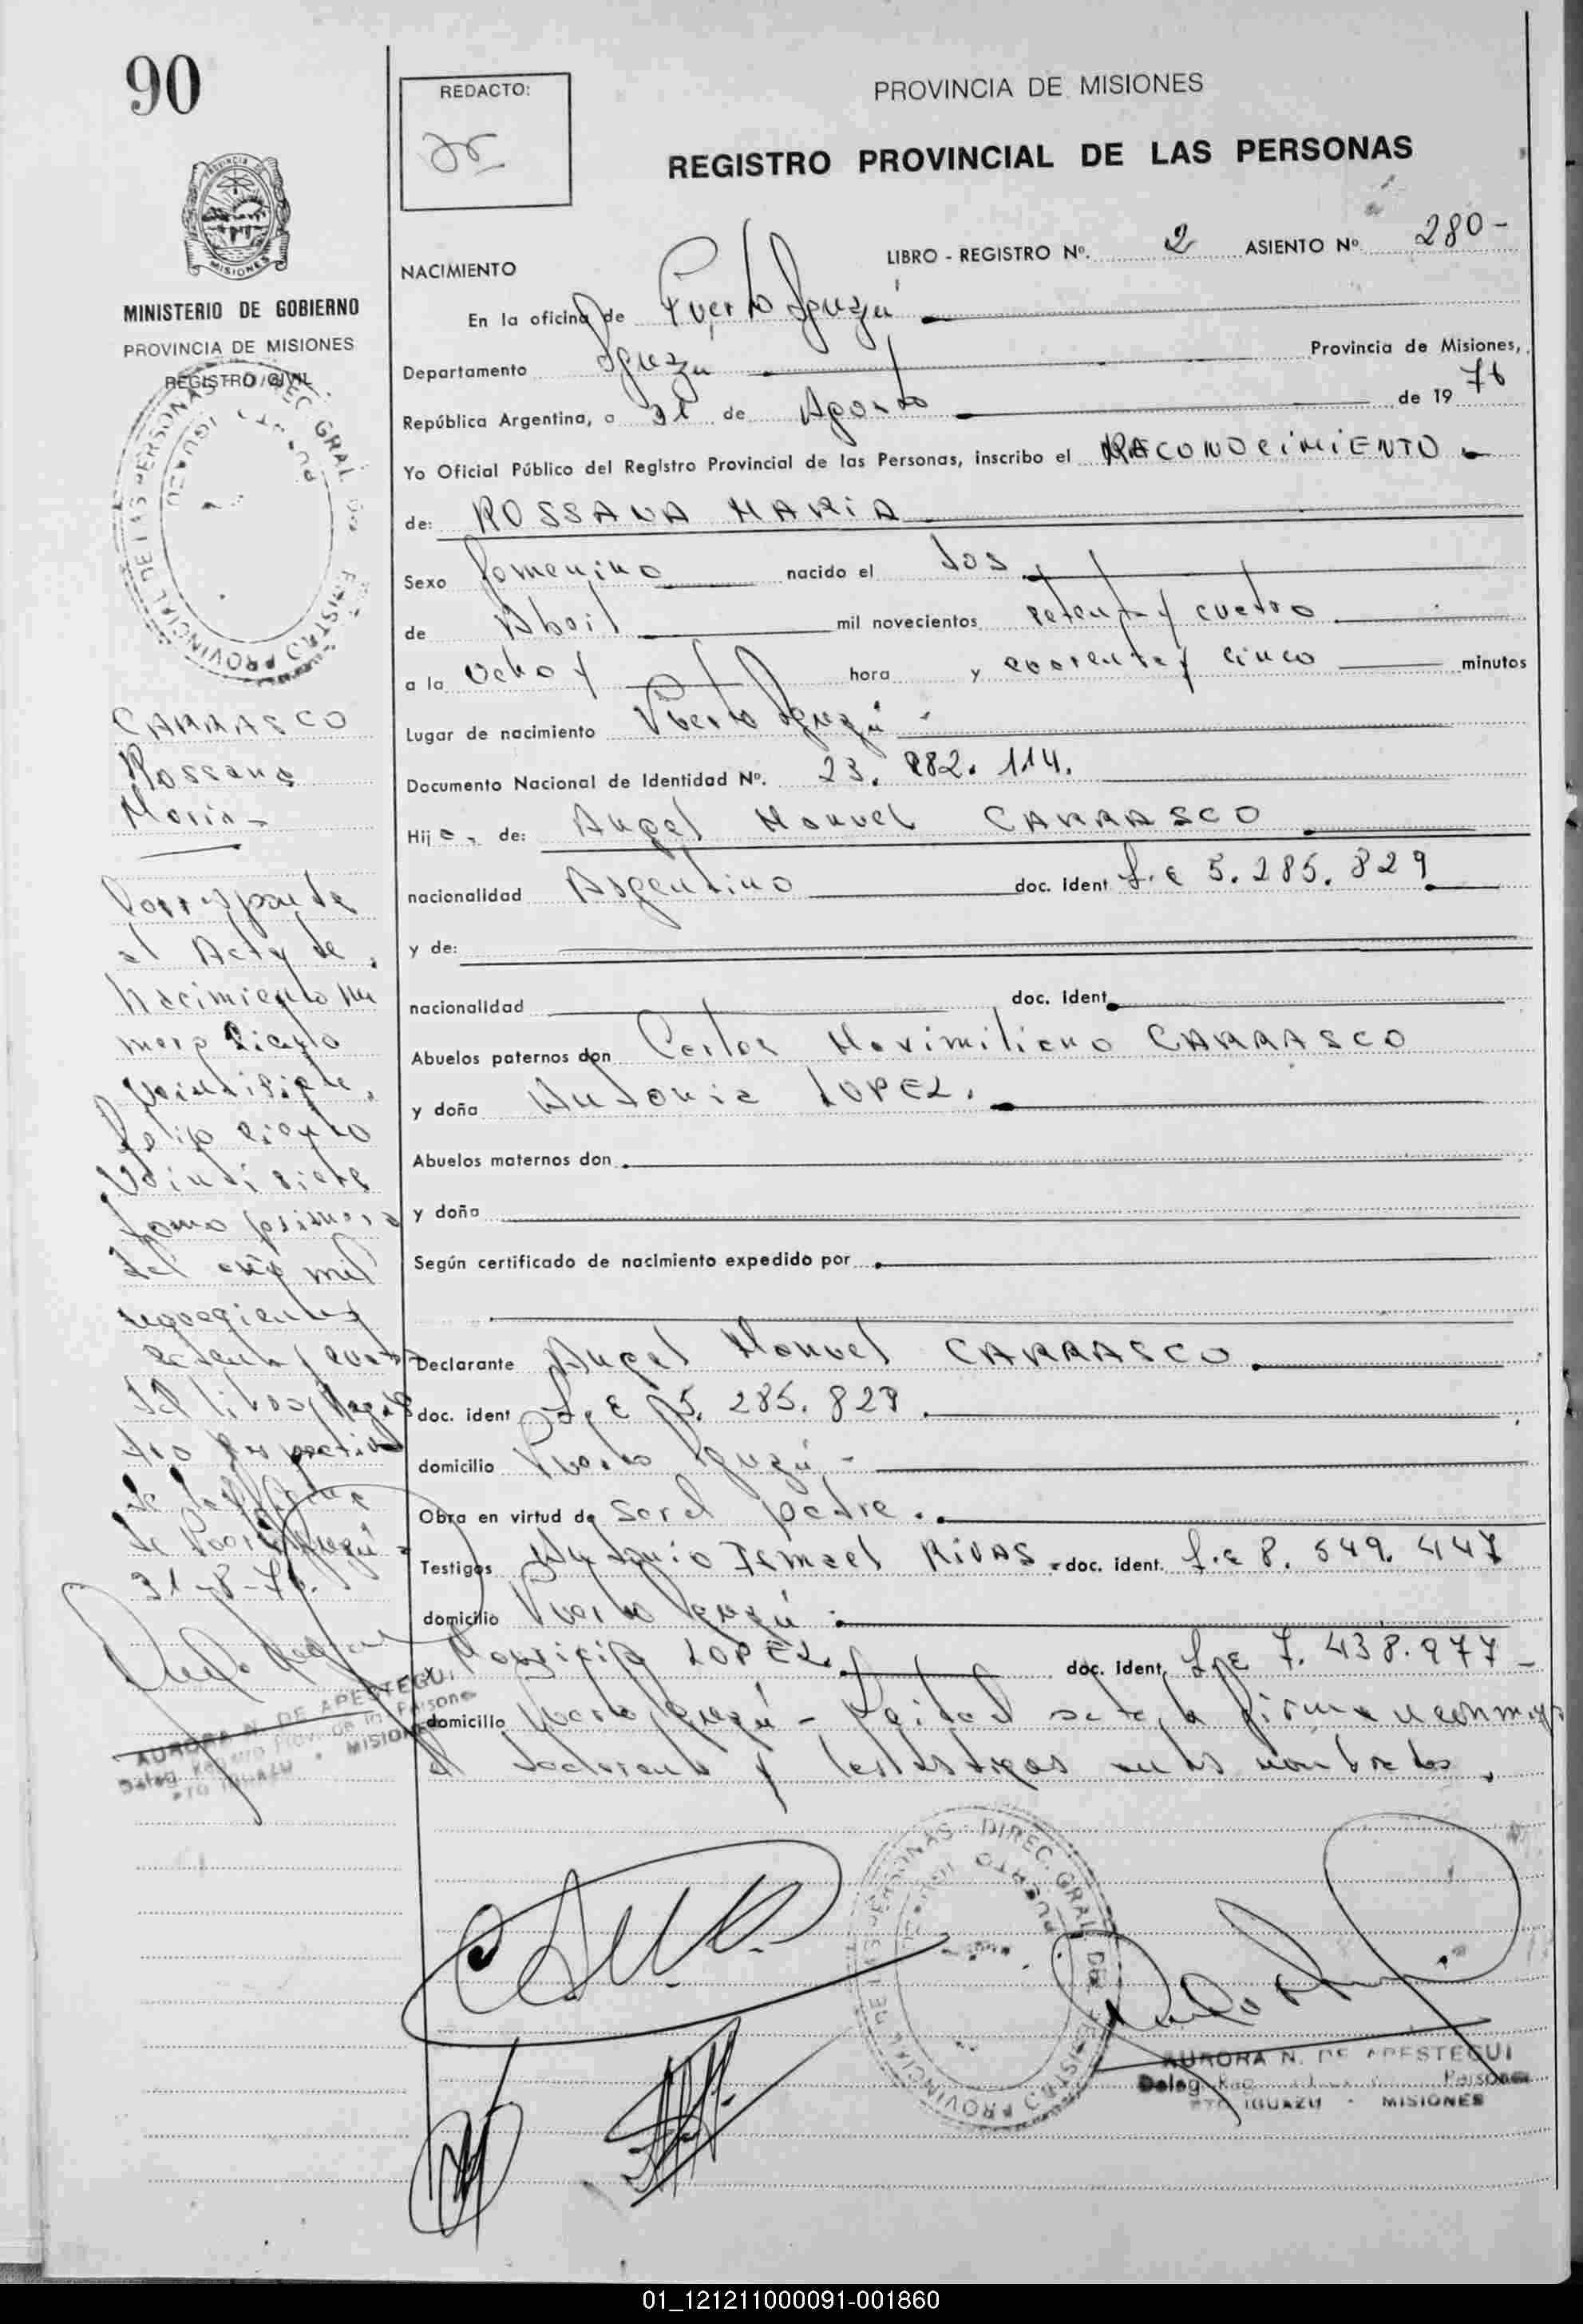 90
REDACTO:
PROVINCIA DE MISIONES
REGISTRO PROVINCIAL DE LAS PERSONAS
MISIONES
MINISTERIO DE GOBIERNO
PROVINCIA DE MISIONES
REGISTRO CIVIL
LIBRO - REGISTRO Nº. 2 ASIENTO Nº 280-
NACIMIENTO
En la oficina de Puerto Iguazú
Departamento Iguazú Provincia de Misiones,
República Argentina, a 31 de Agosto de 1976
Yo Oficial Público del Registro Provincial de las Personas, inscribo el RECONOCIMIENTO
de: ROSSANA MARIA
Sexo femenino nacido el dos
de Abril mil novecientos setenta y cuatro
a la ocho y hora y cuarenta y cinco minutos
Lugar de nacimiento Puerto Iguazú -
Documento Nacional de Identidad Nº. 23. 882. 114.
Hija de: Angel Manuel CARRASCO
nacionalidad Argentino doc. ident L.E 5.285.829
y de:
nacionalidad doc. ident
Abuelos paternos don Carlos Maximiliano CARRASCO
y doña Antonia LOPEZ.
Abuelos maternos don
y doña
Según certificado de nacimiento expedido por
Declarante Angel Manuel CARRASCO
doc. ident L.E 5. 285. 829
domicilio Puerto Iguazú -
Obra en virtud de ser el padre.
Testigos Antonio Ismael RIVAS - doc. ident. L.E 8. 549. 447
domicilio Puerto Iguazú
Mauricio LOPEZ. doc. ident. L.E 7. 438.977-
domicilio Puerto Iguazú - Leida el acta, la firman conmigo
el declarante y los testigos antes nombrados.
CARRASCO
Rossana
Maria-
Corresponde
al Acta de
Nacimiento nu
mero ciento
veintisiete,
folio ciento
veintisiete
tomo primero
del año mil
novecientos
setenta y cuatro
del libro, Regis
tro respectivo
de la oficina
de Puerto Iguazú -
31-8-76.
AURORA N. DE APESTEGUI
Deleg. Registro Prov. de las Personas
PTO IGUAZU - MISIONES
DIREC. GRAL. DEL REGISTRO PROVINCIAL DE LAS PERSONAS
PUERTO IGUAZU
AURORA N. DE APESTEGUI
Deleg. Reg. Personas
PTO IGUAZU - MISIONES
01_121211000091-001860